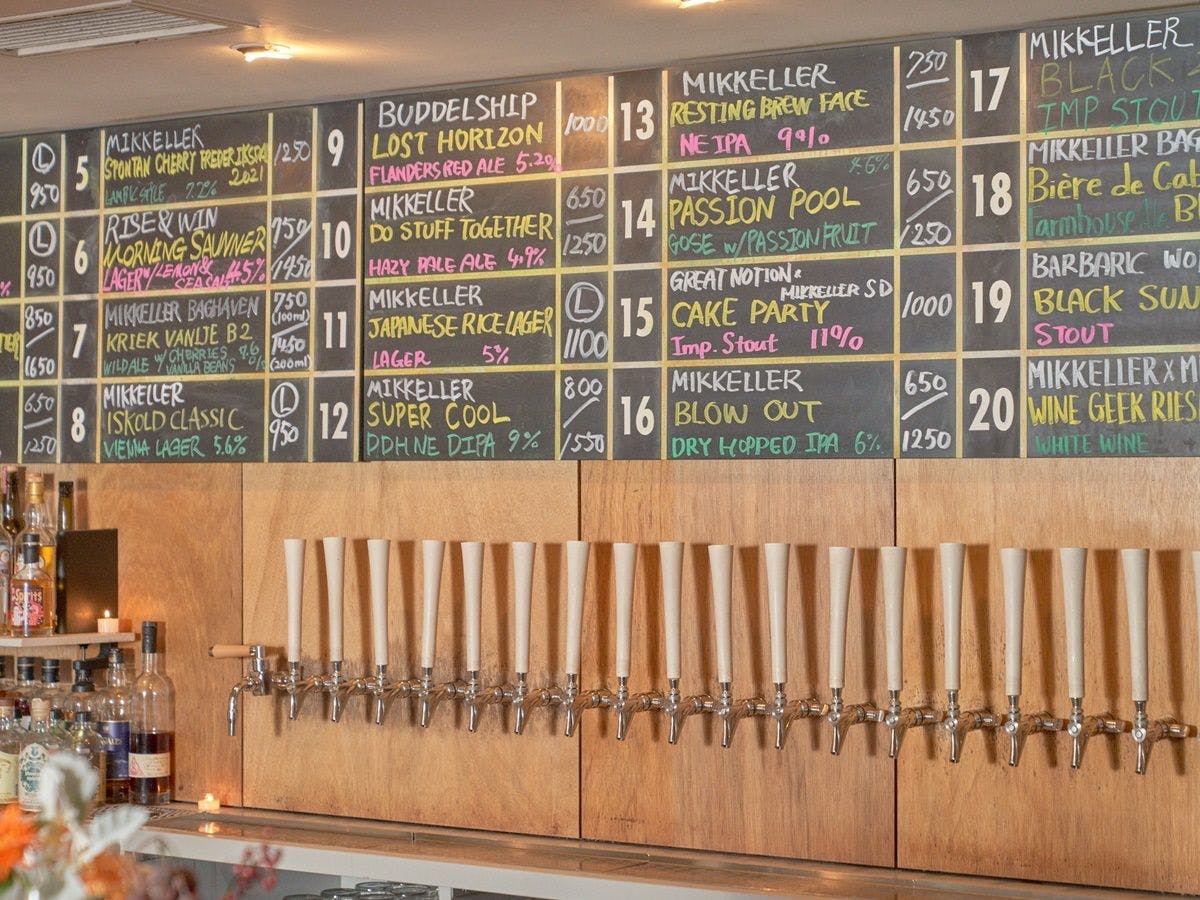 %
Ⓛ
950
Ⓛ
950
850
1650
650
1250
5
MIKKELLER
SPONTAN CHERRY FREDERIKSDAL
2021
LAMBIC STYLE 7.2%
1250
6
RISE & WIN
MORNING SAUNNER
LAGER W/ LEMON &
SEA SALT 4.5%
750
1450
7
MIKKELLER BAGHAVEN
KRIEK VANILJE B2
WILD ALE W/ CHERRIES
VANILLA BEANS
750
(100ml)
1450
(200ml)
8
MIKKELLER
ISKOLD CLASSIC
VIENNA LAGER 5.6%
Ⓛ
950
9
BUDDELSHIP
LOST HORIZON
FLANDERS RED ALE 5.2%
1000
10
MIKKELLER
DO STUFF TOGETHER
HAZY PALE ALE 4.9%
650
1250
11
MIKKELLER
JAPANESE RICE LAGER
LAGER 5%
Ⓛ
1100
12
MIKKELLER
SUPER COOL
DDH NE DIPA 9%
800
1550
13
MIKKELLER
RESTING BREW FACE
NE IPA 9%
750
1450
14
MIKKELLER 4.6%
PASSION POOL
GOSE W/ PASSION FRUIT
650
1250
15
GREAT NOTION &
MIKKELLER SD
CAKE PARTY
Imp. Stout 11%
1000
16
MIKKELLER
BLOW OUT
DRY HOPPED IPA 6%
650
1250
17
MIKKELLER
BLACK
IMP STOU
18
MIKKELLER BAG
Bière de Cat
Farmhouse Ale B
19
BARBARIC WO
BLACK SUN
STOUT
20
MIKKELLER X M
WINE GEEK RIES
WHITE WINE
Spirits